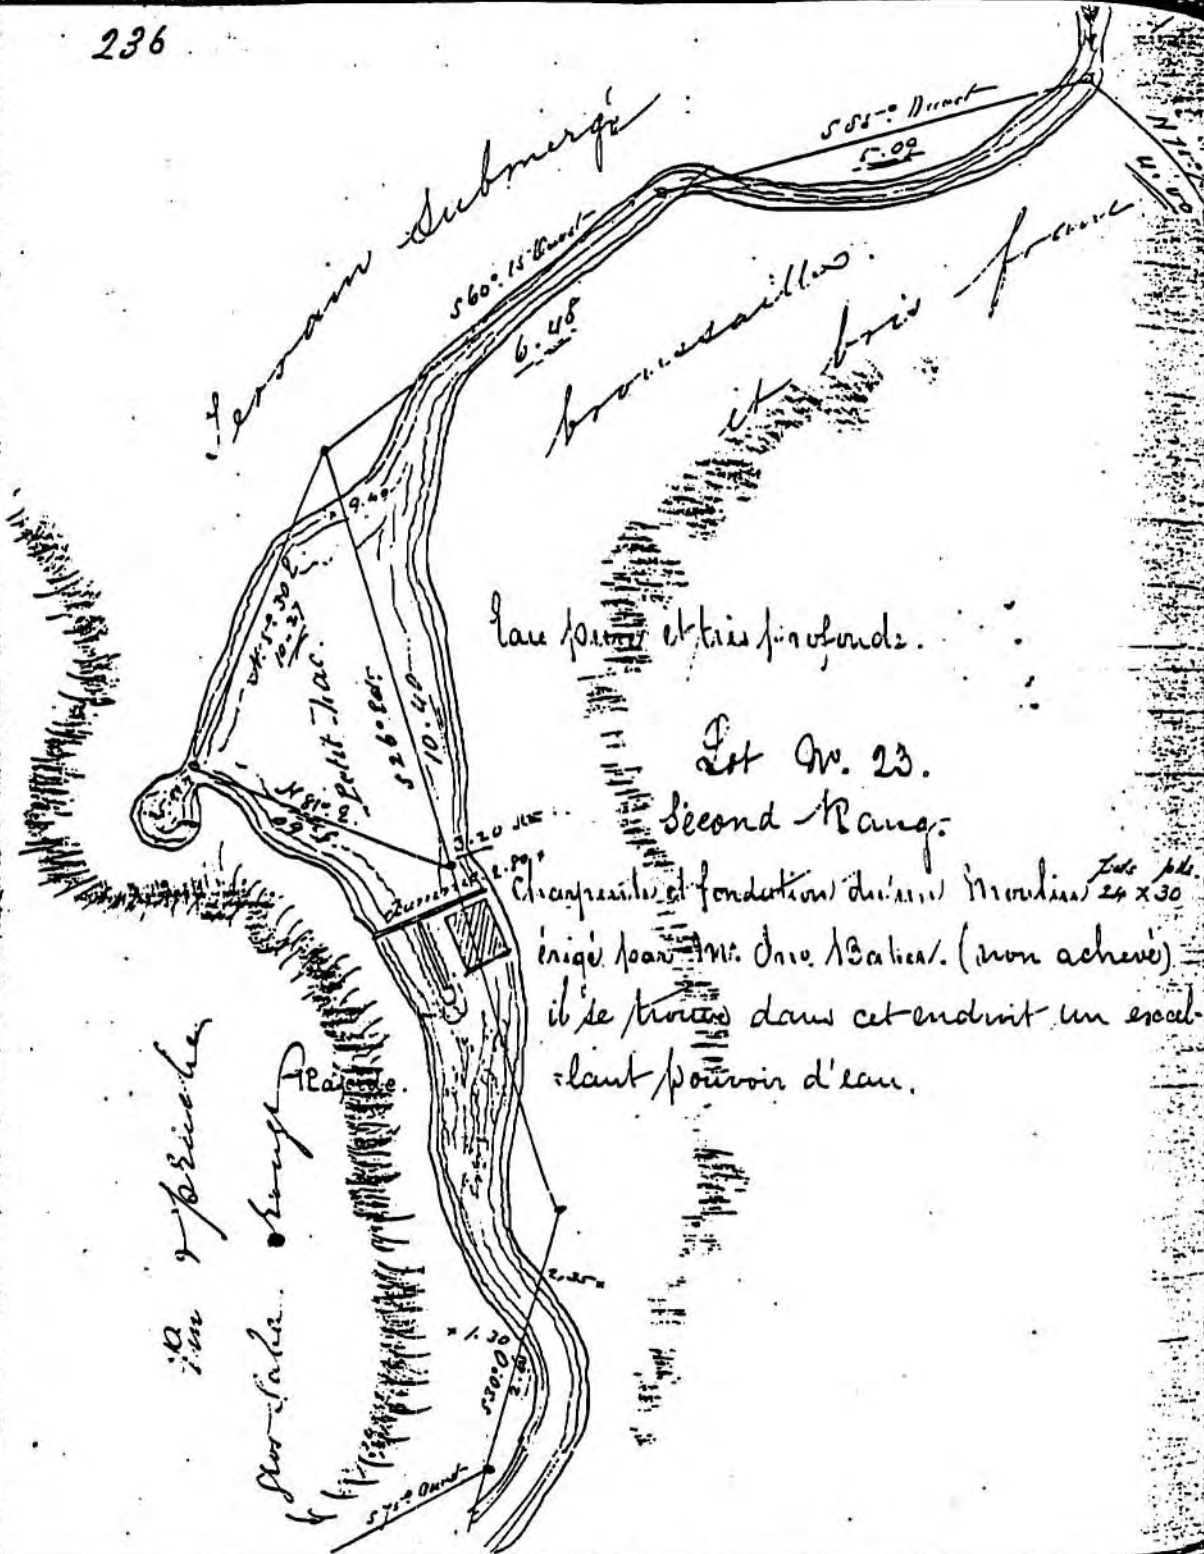 236
Terrain Submergé
S 85° Ouest
5.09
S 60° 15 Ouest
6.48
broussailles
et bois franc
9.40
10-27
Petit Lac.
S 26° Est
10.40
N 81°
Eau pure et très profonde.
Lot No. 23.
Second Rang.
3.20
2.80
Charpente et fondation d'un Moulin 24 x 30
érigé par Mr. (non achevé)
il se trouve dans cet endroit un excel-
=lant pouvoir d'eau.
Pin Epinette
Rouge
2.35
x 1.30
S 30° O
S 75° Ouest